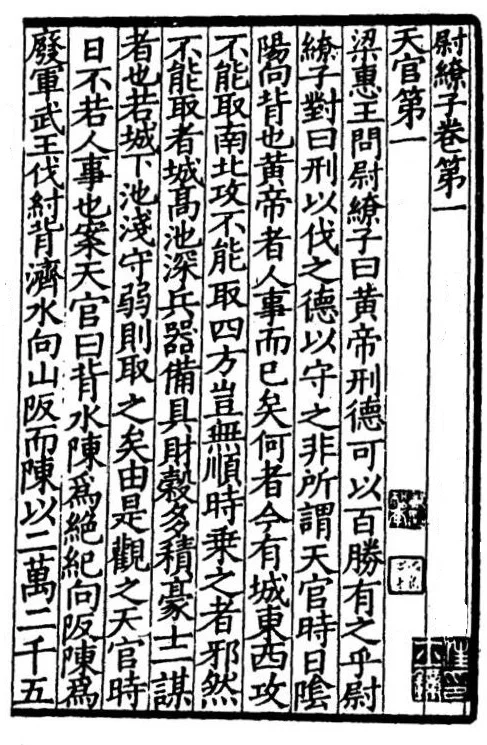 尉繚子卷第一
天官第一
梁惠王問尉繚子曰黃帝刑德可以百勝有之乎尉
繚子對曰刑以伐之德以守之非所謂天官時日陰
陽向背也黃帝者人事而已矣何者今有城東西攻
不能取南北攻不能取四方豈無順時乗之者邪然
不能取者城高池深兵器備具財穀多積豪士一謀
者也若城下池淺守弱則取之矣由是觀之天官時
日不若人事也案天官曰背水陳爲絕紀向阪陳爲
廢軍武王伐紂背濟水向山阪而陳以二萬二千五